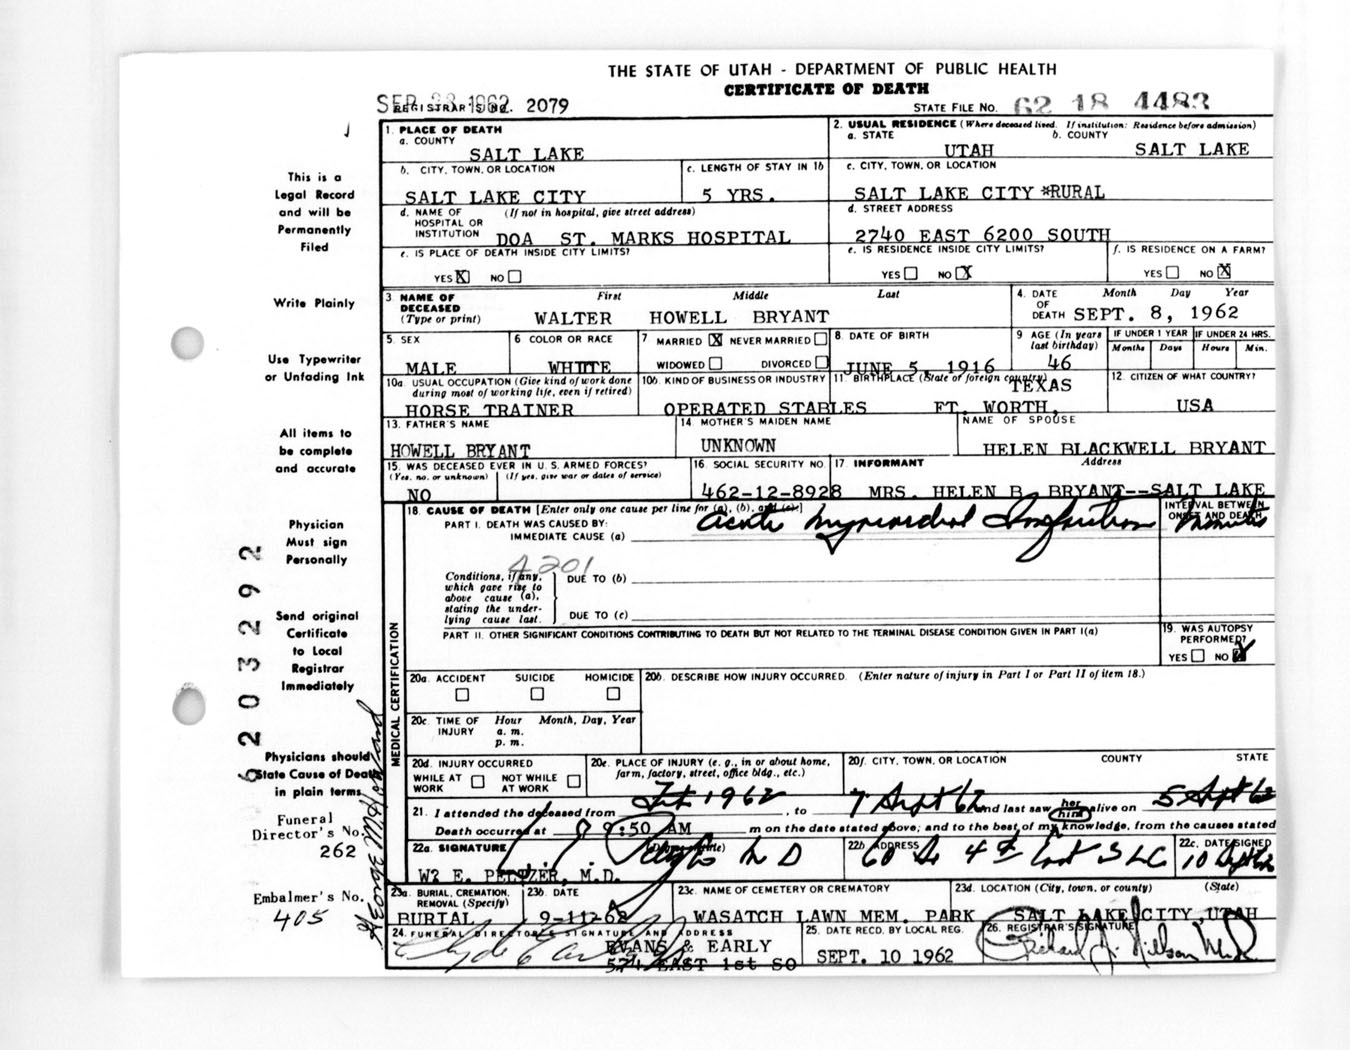 THE STATE OF UTAH - DEPARTMENT OF PUBLIC HEALTH
CERTIFICATE OF DEATH
SEP 1962
REGISTRAR'S NO. 2079
STATE FILE NO. 62 18 4483
This is a
Legal Record
and will be
Permanently
Filed
Write Plainly
Use Typewriter
or Unfading Ink
All items to
be complete
and accurate
Physician
Must sign
Personally
Send original
Certificate
to Local
Registrar
Immediately
Physicians should
State Cause of Death
in plain terms
Funeral
Director's No.
262
Embalmer's No.
405
6203292
1. PLACE OF DEATH
a. COUNTY
SALT LAKE
2. USUAL RESIDENCE (Where deceased lived. If institution: Residence before admission)
a. STATE b. COUNTY
UTAH SALT LAKE
b. CITY, TOWN, OR LOCATION
SALT LAKE CITY
c. LENGTH OF STAY IN 1b
5 YRS.
c. CITY, TOWN, OR LOCATION
SALT LAKE CITY *RURAL
d. NAME OF (If not in hospital, give street address)
HOSPITAL OR
INSTITUTION DOA ST. MARKS HOSPITAL
d. STREET ADDRESS
2740 EAST 6200 SOUTH
e. IS PLACE OF DEATH INSIDE CITY LIMITS?
YES X NO
e. IS RESIDENCE INSIDE CITY LIMITS?
YES NO X
f. IS RESIDENCE ON A FARM?
YES NO X
3. NAME OF First Middle Last
DECEASED
(Type or print) WALTER HOWELL BRYANT
4. DATE Month Day Year
OF
DEATH SEPT. 8, 1962
5. SEX
MALE
6 COLOR OR RACE
WHITE
7 MARRIED X NEVER MARRIED
WIDOWED DIVORCED
8. DATE OF BIRTH
JUNE 5, 1916
9 AGE (In years
last birthday)
46
IF UNDER 1 YEAR IF UNDER 24 HRS.
Months Days Hours Min.
10a. USUAL OCCUPATION (Give kind of work done
during most of working life, even if retired)
HORSE TRAINER
10b. KIND OF BUSINESS OR INDUSTRY
OPERATED STABLES
11. BIRTHPLACE (State or foreign country)
TEXAS
FT. WORTH,
12. CITIZEN OF WHAT COUNTRY?
USA
13. FATHER'S NAME
HOWELL BRYANT
14. MOTHER'S MAIDEN NAME
UNKNOWN
NAME OF SPOUSE
HELEN BLACKWELL BRYANT
15. WAS DECEASED EVER IN U.S. ARMED FORCES?
(Yes, no, or unknown) (If yes, give war or dates of service)
NO
16. SOCIAL SECURITY NO.
462-12-8928
17. INFORMANT Address
MRS. HELEN B. BRYANT--SALT LAKE
MEDICAL CERTIFICATION
18. CAUSE OF DEATH [Enter only one cause per line for (a), (b), and (c).]
PART I. DEATH WAS CAUSED BY:
IMMEDIATE CAUSE (a) Acute Myocardial Infarction
INTERVAL BETWEEN
ONSET AND DEATH
Minutes
4201
Conditions, if any,
which gave rise to
above cause (a),
stating the under-
lying cause last.
DUE TO (b)
DUE TO (c)
PART II. OTHER SIGNIFICANT CONDITIONS CONTRIBUTING TO DEATH BUT NOT RELATED TO THE TERMINAL DISEASE CONDITION GIVEN IN PART I(a)
19. WAS AUTOPSY
PERFORMED?
YES NO X
20a. ACCIDENT SUICIDE HOMICIDE
20b. DESCRIBE HOW INJURY OCCURRED. (Enter nature of injury in Part I or Part II of item 18.)
20c. TIME OF Hour Month, Day, Year
INJURY a. m.
p. m.
20d. INJURY OCCURRED
WHILE AT WORK NOT WHILE AT WORK
20e. PLACE OF INJURY (e. g., in or about home,
farm, factory, street, office bldg., etc.)
20f. CITY, TOWN, OR LOCATION COUNTY STATE
21. I attended the deceased from Feb 1962, to 7 Sept 62 and last saw her him alive on 5 Sept 62
Death occurred at 9:50 AM m on the date stated above; and to the best of my knowledge, from the causes stated
22a. SIGNATURE (Degree or title)
M D
W? E. PELTZER, M.D.
22b. ADDRESS
60 So 4th East SLC
22c. DATE SIGNED
10 Sept 62
23a. BURIAL, CREMATION,
REMOVAL (Specify)
BURIAL
23b. DATE
9-11-62
23c. NAME OF CEMETERY OR CREMATORY
WASATCH LAWN MEM. PARK
23d. LOCATION (City, town, or county) (State)
SALT LAKE CITY, UTAH
24. FUNERAL DIRECTOR'S SIGNATURE AND ADDRESS
Clyde E Early
EVANS & EARLY
574 EAST 1st SO
25. DATE RECD. BY LOCAL REG.
SEPT. 10 1962
26. REGISTRAR'S SIGNATURE
Richard J. Nilson M.D.